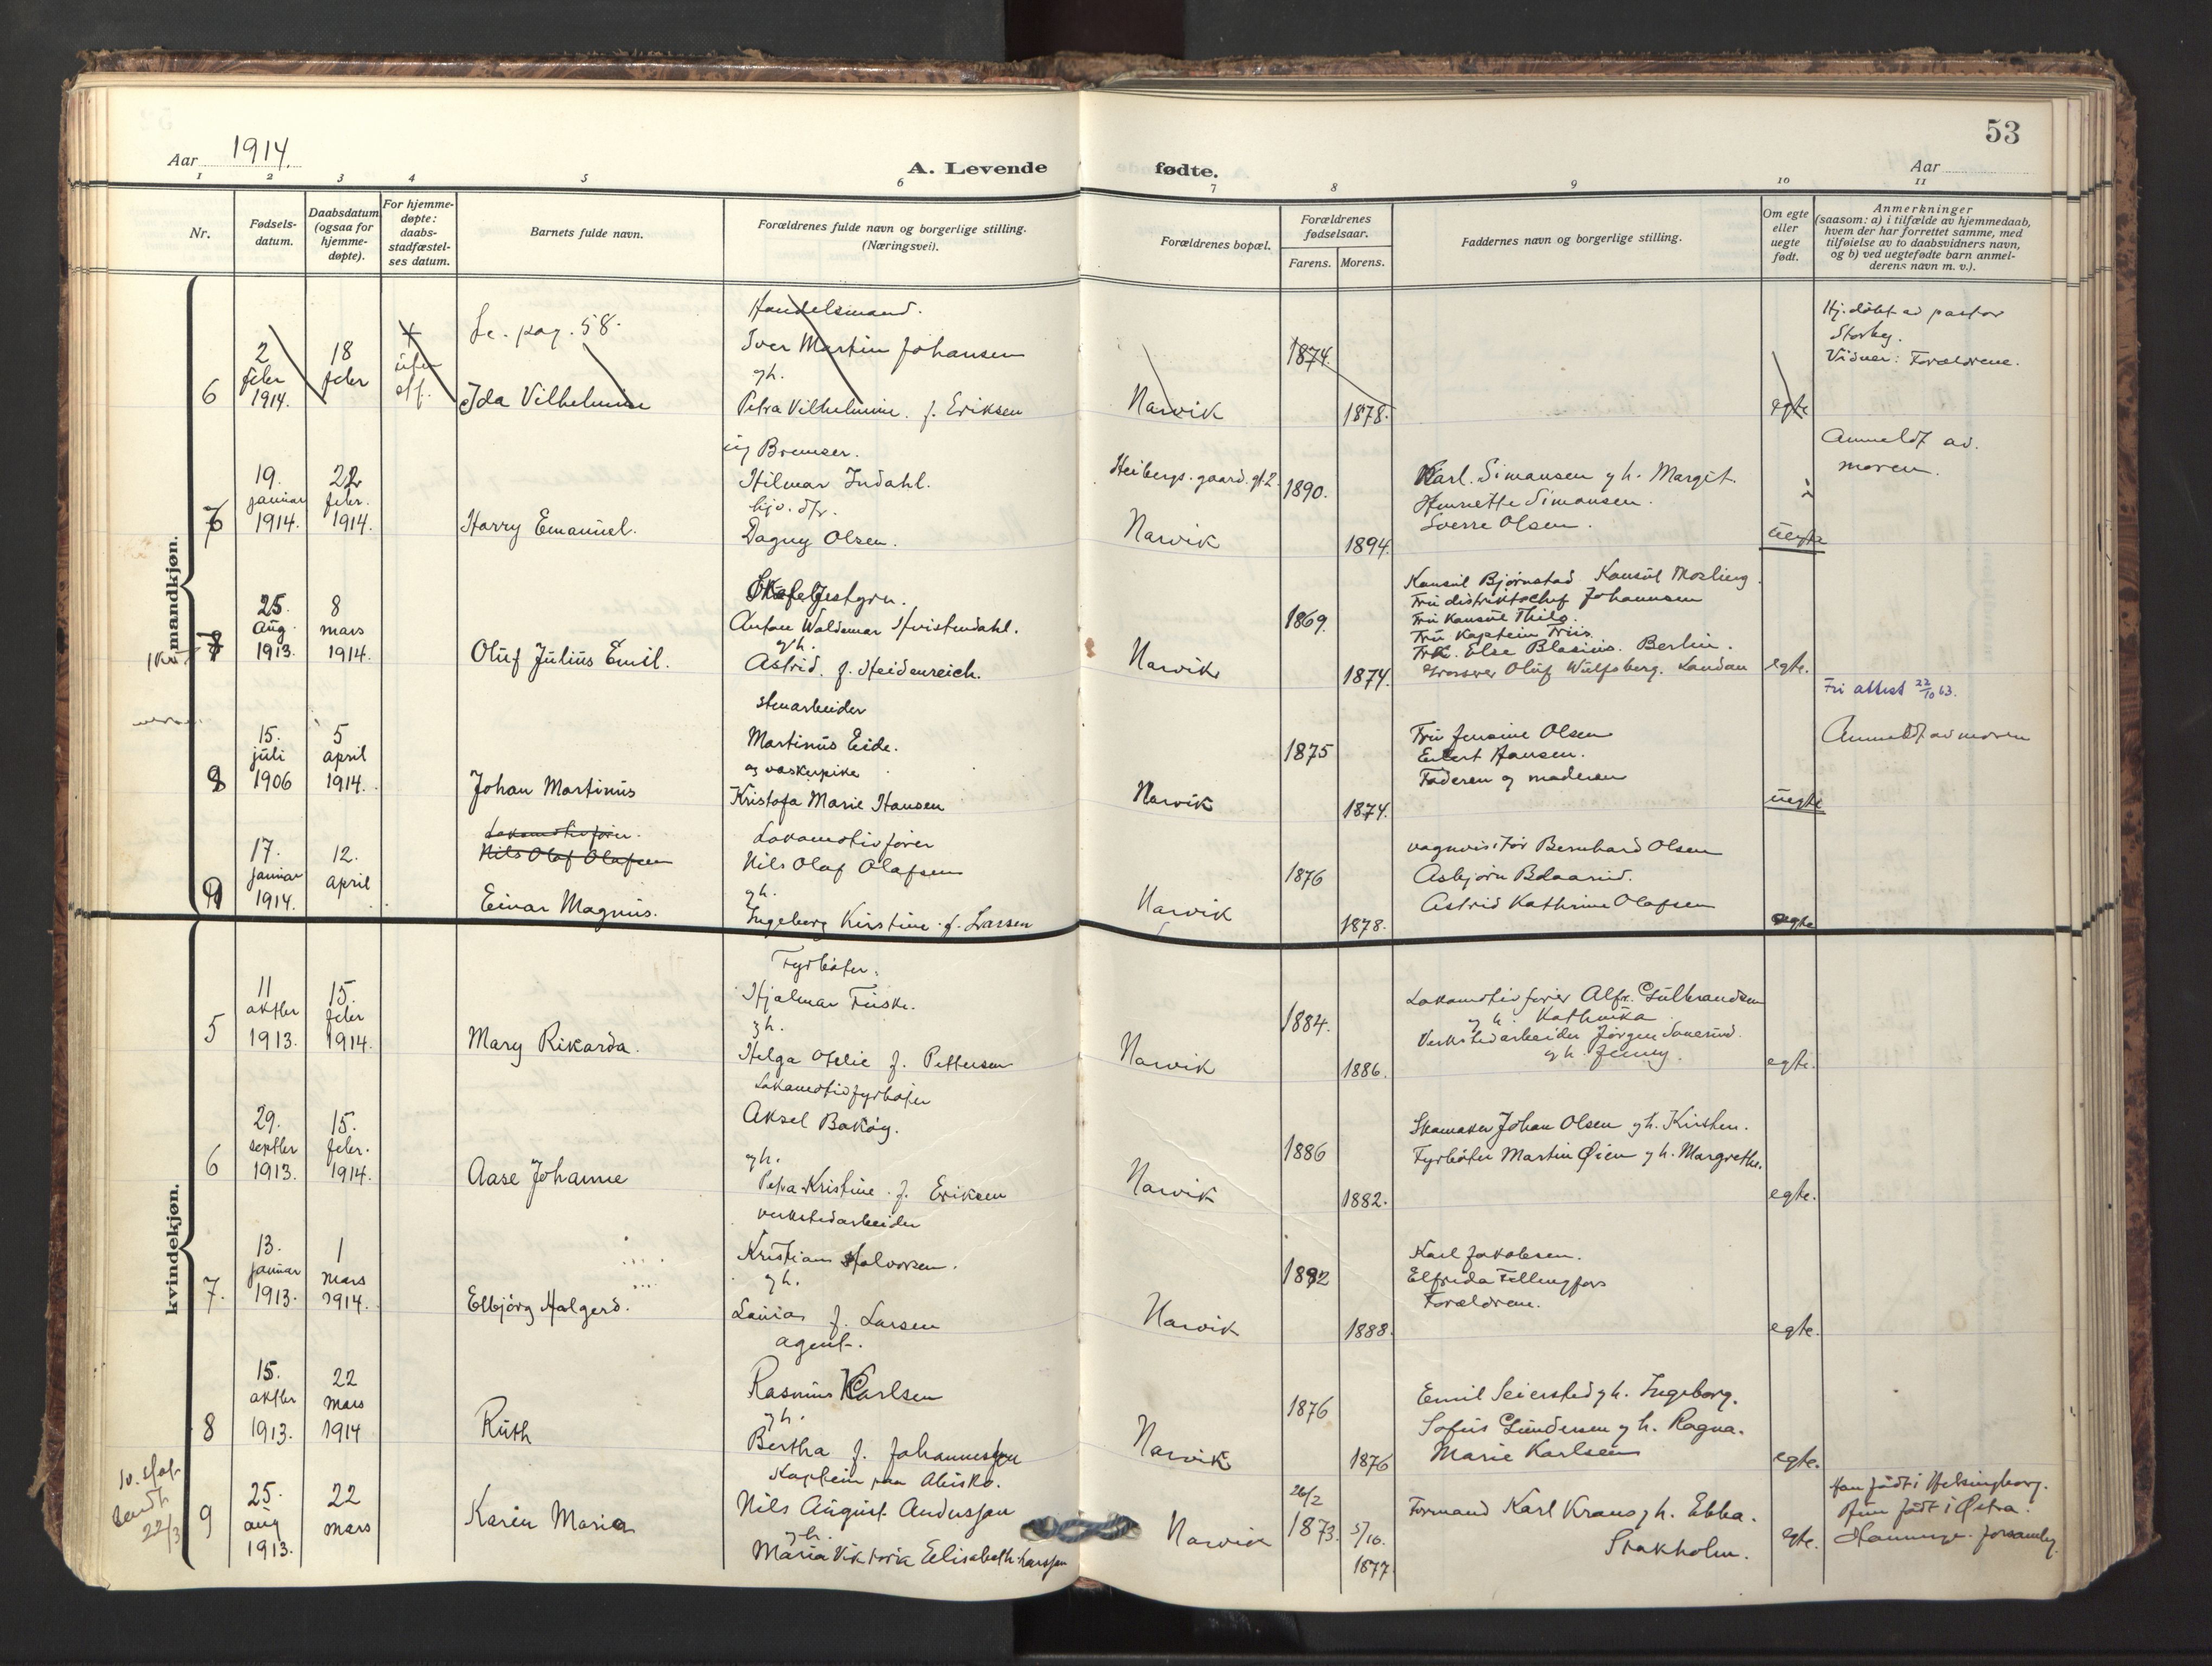 53
Aar 1914.
A. Levende fødte.
Aar
1 2 3 4 5 6 7 8 9 10 11
Nr.
Fødsels-
datum.
Daabsdatum
(ogsaa for
hjemme-
døpte).
For hjemme-
døpte:
daabs-
stadfæstel-
ses datum.
Barnets fulde navn.
Forældrenes fulde navn og borgerlige stilling.
(Næringsvei).
Forældrenes bopæl.
Forældrenes
fødselsaar.
Farens. Morens.
Faddernes navn og borgerlige stilling.
Om egte
eller
uegte
født.
Anmerkninger
(saasom: a) i tilfælde av hjemmedaab,
hvem der har forrettet samme, med
tilføielse av to daabsvidners navn,
og b) ved uegtefødte barn anmel-
derens navn m. v.).
mandkjøn.
6
2
febr
1914.
18
febr
Se. pag. 58.
Ida Vilhelmine
Handelsmand.
Iver Martin Johansen
gh.
Petra Vilhelmine. f. Eriksen
Narvik
1874.
1878.
egte
Hj. døbt av pastor
Vidner: Forældrene.
19.
januar
1914.
22
febr.
1914.
Harry Emanuel.
Bremser.
Hilmar Indahl.
Dagny Olsen.
Heibergs. gaard.
Narvik
1890.
1894.
Karl. Simansen gh. Margit.
Henriette Simonsen.
Sverre Olsen.
uegte
Anmeldt av.
moren.
25.
aug.
1913.
8
mars
1914.
Oluf Julius Emil.
Anton Waldemar Hvistendahl.
gh.
Astrid. f. Heidenreich.
Narvik
1869.
1874.
Konsul Bjørnstad Konsul Mosling.
Fru distriktschef Johannsen
Fru Konsul Thilo.
Fru Kaptein Friis.
Frk. Else Blasius. Berlin.
Grosserer Oluf Wulfsberg. Landau
egte.
Fri attest 22/10 63.
15.
juli
1906
5
april
1914.
Johan Martinius
stenarbeider
Martinus Eide.
og vaskepike
Kristofa Marie Hansen
Narvik
1875
1874.
Fru Jensine Olsen
Eilert Hansen.
Faderen og moderen
uegte
Anmeldt av moren
17.
januar
1914.
12.
april
Lokomotivfører.
Nils Olaf Olafsen
Einar Magnus.
Lokomotivfører
Nils Olaf Olafsen
gh.
Ingeborg Kirstine. f. Larsen
Narvik
1876
1878.
vognvisitør Bernhard Olsen
Asbjørn Blaasrud.
Astrid Kathrine Olafsen
egte
kvindekjøn.
5
11
oktbr
1913.
15.
febr
1914.
Mary Rikarda.
Fyrbøter.
Hjalmar Fiiske.
gh.
Helga Ofelie f. Pettersen
Narvik
1884.
1886.
Lokomotivfører Alfr. Gulbrandsen
gh. Kathinka
Verkstedarbeider Jørgen Sanerud.
gh. Jenny.
egte.
6
29.
septbr
1913.
15.
febr.
1914.
Aase Johanne
Lokomotivfyrbøter
Aksel Bakøy.
gh.
Petra Kristine. f. Eriksen
Narvik
1886
1882.
Skomaker Johan Olsen gh. Kirsten.
Fyrbøter Martin Øien gh. Margrethe.
egte.
7.
13.
januar
1913.
1
mars
1914.
Elbjørg Halgerd.
verkstedarbeider
Kristian Halvorsen.
gh.
Laura f. Larsen
Narvik
1892
1888.
Karl Jakobsen.
Elfrida Fellingfors
Forældrene.
egte.
8
15.
oktbr
1913.
22
mars
1914
Ruth
agent.
Rasmus Karlsen
gh.
Bertha f. Johannessen
Narvik
1876
1876
Emil Seiersted gh. Ingeborg.
Sofus Gundersen gh. Ragna.
Marie Karlsen
egte.
sendt
22/3
9
25.
aug
1913.
22
mars
Karin Maria
Kaptein paa Abisko.
Nils August Andersson
gh.
Maria Viktoria Elisabeth Larsson
Narvik
26/2
1873.
5/10.
1877
Formand Karl Krans gh. Ebba.
Stockholm.
egte.
Han født i Helsingborg.
Hun født i Østra.
Hanninge. forsamling.